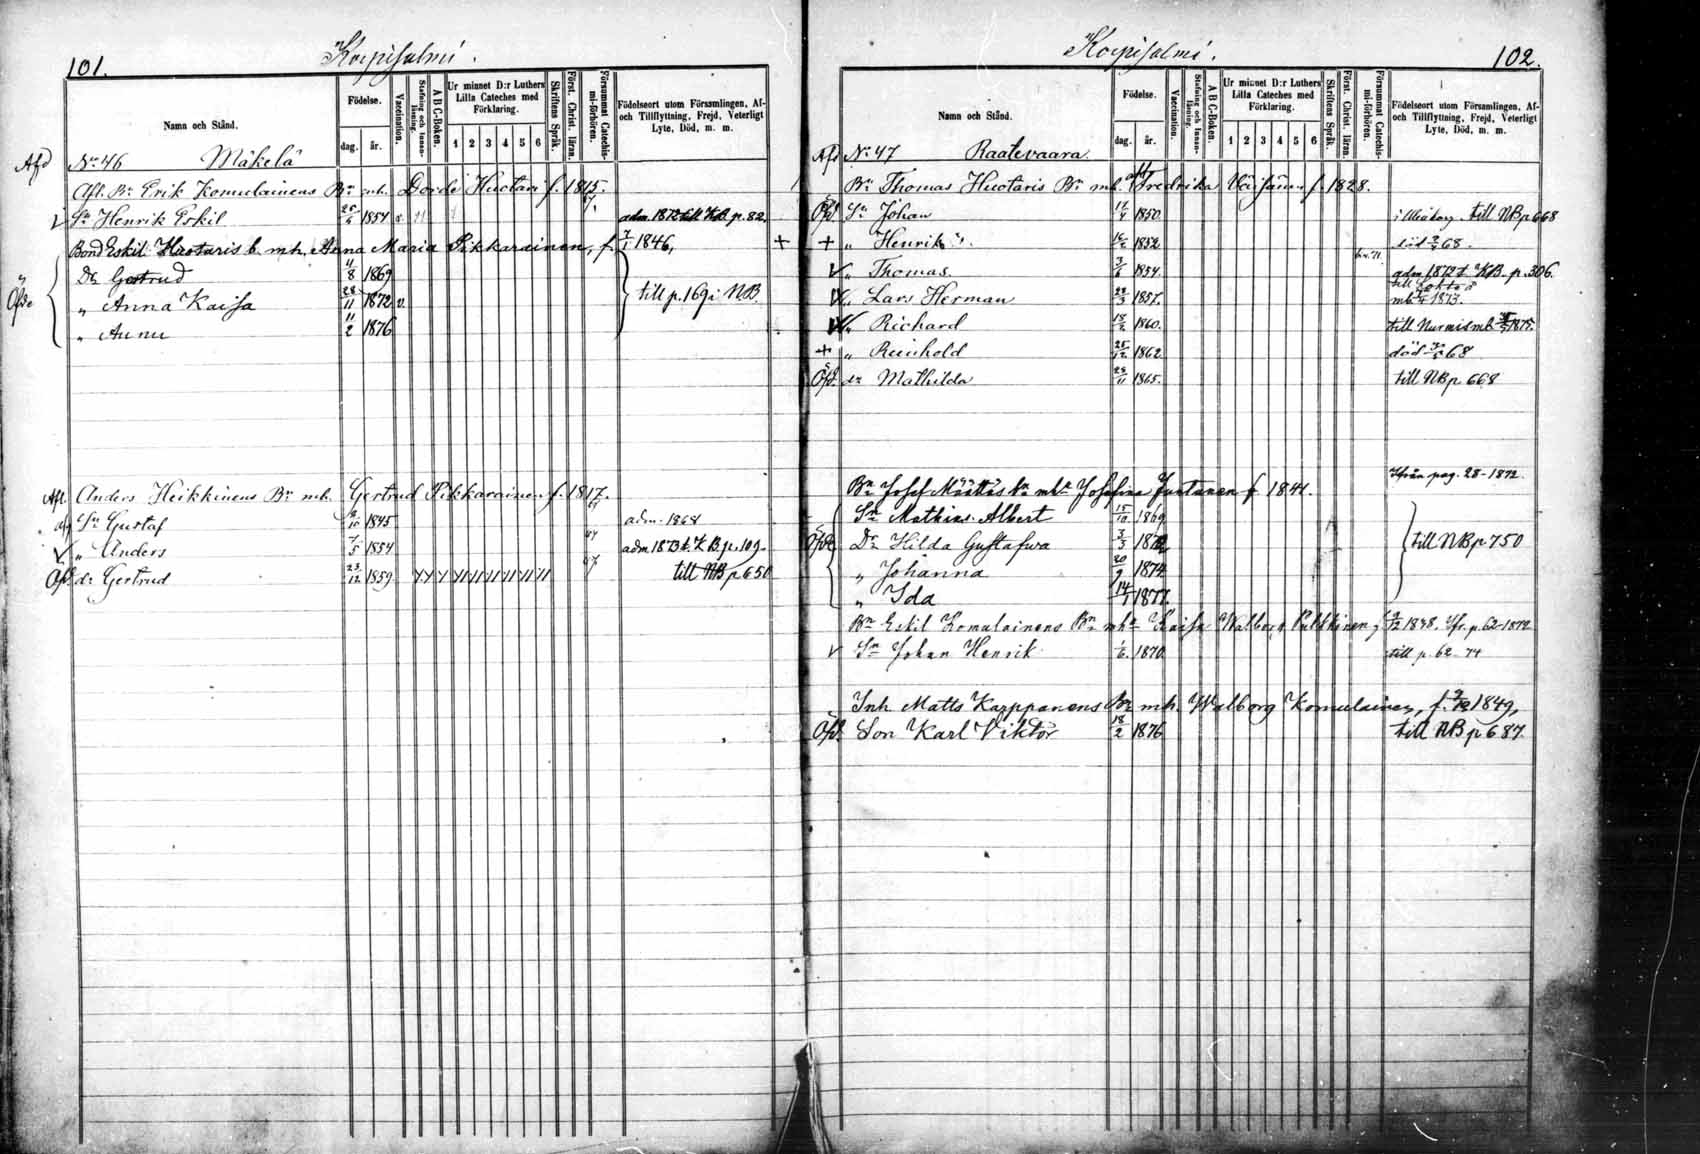 101.
Korpisalmi.
Namn och Stånd.
Födelse.
dag.
år.
Vaccination.
Stafning och Innan-
läsning.
A B C-Boken.
Ur minnet D:r Luthers
Lilla Cateches med
Förklaring.
1 2 3 4 5 6
Skriftens Språk.
Först. Christ. läran.
Försummat Catechis-
mi-förhören.
Födelseort utom Församlingen, Af-
och Tillflyttning, Frejd, Veterligt
Lyte, Död, m. m.
Afd No 46 Mäkelä
Afl. Bn Erik Komulainens Bn mh. Huotari f. 1815.
Sn Henrik Eskil 1854 v. adm. 1872 till KB p. 82.
Bond Eskil Huotaris b. mh. Anna Maria Pikkarainen, f. 7/1 1846,
Dr Gertrud 11/8 1869
" Anna Kaisa 28/11 1872 v. till p. 169 i N.B.
" Anna 11/2 1876
Afl. Anders Heikkinens Bn mh. Gertrud Pikkarainen f. 1817.
Sn Gustaf 1845 adm. 1868
" Anders 7/5 1854 adm 1873 t. K.B. p. 109.
dr Gertrud 23/12 1859 till NB p 650
102.
Korpisalmi.
Namn och Stånd.
Födelse.
dag.
år.
Vaccination.
Stafning och Innan-
läsning.
A B C-Boken.
Ur minnet D:r Luthers
Lilla Cateches med
Förklaring.
1 2 3 4 5 6
Skriftens Språk.
Först. Christ. läran.
Försummat Catechis-
mi-förhören.
Födelseort utom Församlingen, Af-
och Tillflyttning, Frejd, Veterligt
Lyte, Död, m. m.
Afd No 47 Raatevaara.
Bn Thomas Huotaris Bn mh. Fredrika Väisänen f. 1828.
Sn Johan 1850. i Uleåborg till NB p 668
+ + " Henrik 1852 död 68.
" Thomas. 1854. adm 1872 t. KB. p. 306.
" Lars Herman 1857. mb 1873.
" Richard 1860. till Nurmis mb 1875.
+ " Reinhold 25/12 1862 död 68
dr Mathilda 1865. till NB p 668
Ifrån pag. 28-1872.
Bn Josef Määttäs bn mhn Josefina Juntunen f. 1841.
Sn Mathias Albert 15/10 1869
Dr Hilda Gustafva 3/3 till NB p 750
" Johanna 20/9 1874
" Ida 1877.
Bn Eskil Komulainens Bn mhn Kaisa Walborg Pulkkinen f. 1848. Ifr. p. 62-1872
v Sn Johan Henrik 1/6. 1870. till p. 62-74
Inh Matts Karppanens Bn mh. Walborg Komulainen, f. 1849,
Son Karl Viktor 18/2 1876 till NB p 687.